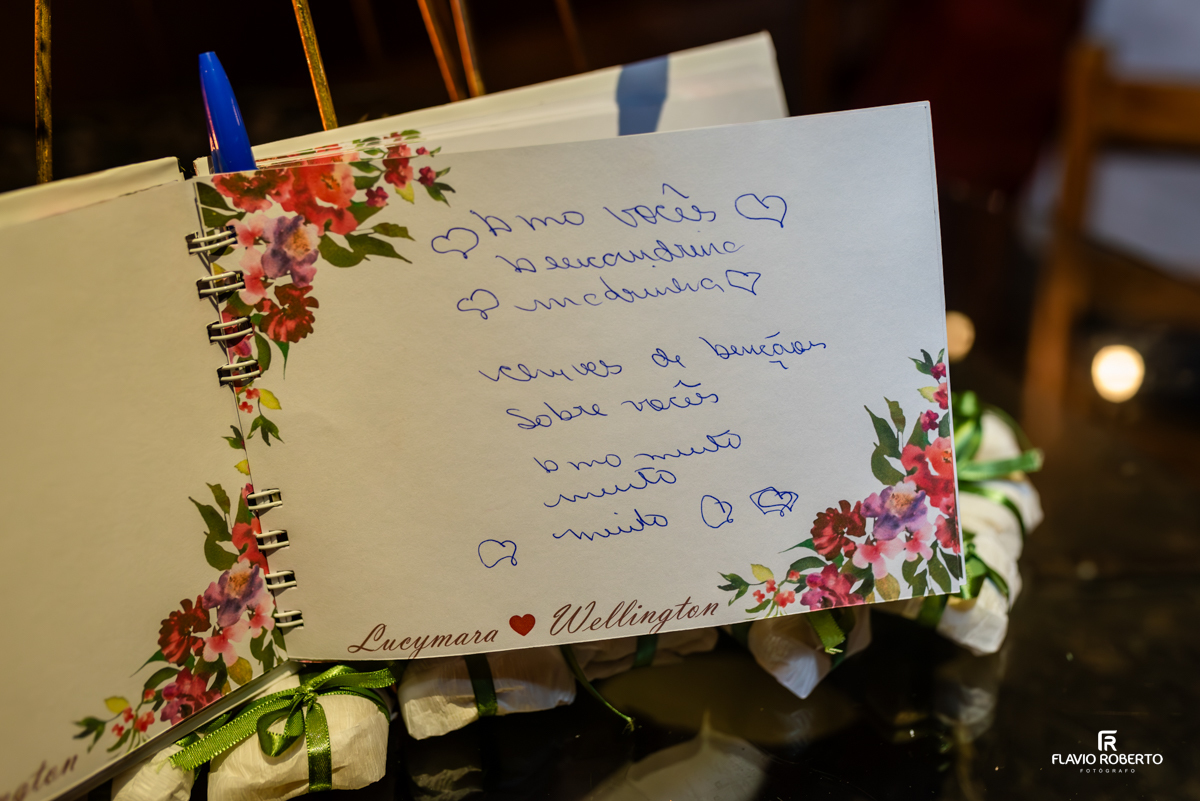 Amo vocês
madrinha
de bençãos
Sobre vocês
Amo muito
muito
muito
Lucymara Wellington
ngton
FR
FLAVIO ROBERTO
FOTÓGRAFO